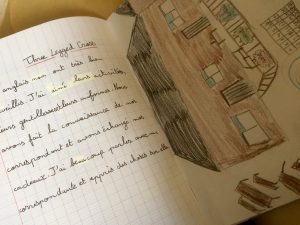 Three Legged Cross
anglais nous ont très bien
accueillis. J'ai aimé leurs activités,
leurs gentillesses, leurs uniformes. Nous
avons fait la connaissance de nos
correspondants et avons échangé nos
cadeaux. J'ai beaucoup parlé avec ma
correspondante et appris des choses sur elle